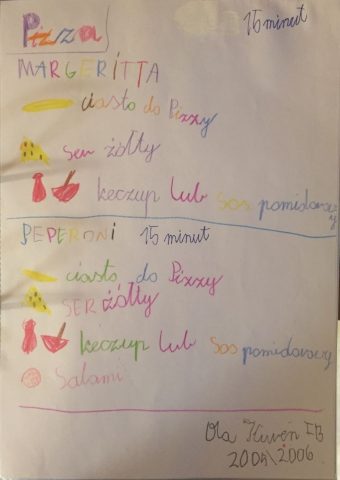 Pizza 15 minut
MARGERITTA
ciasto do Pizzy
ser żółty
keczup lub sos pomidorowy
PEPERONI 15 minut
ciasto do Pizzy
SER żółty
keczup lub sos pomidorowy
Salami
Ola
2004\2006